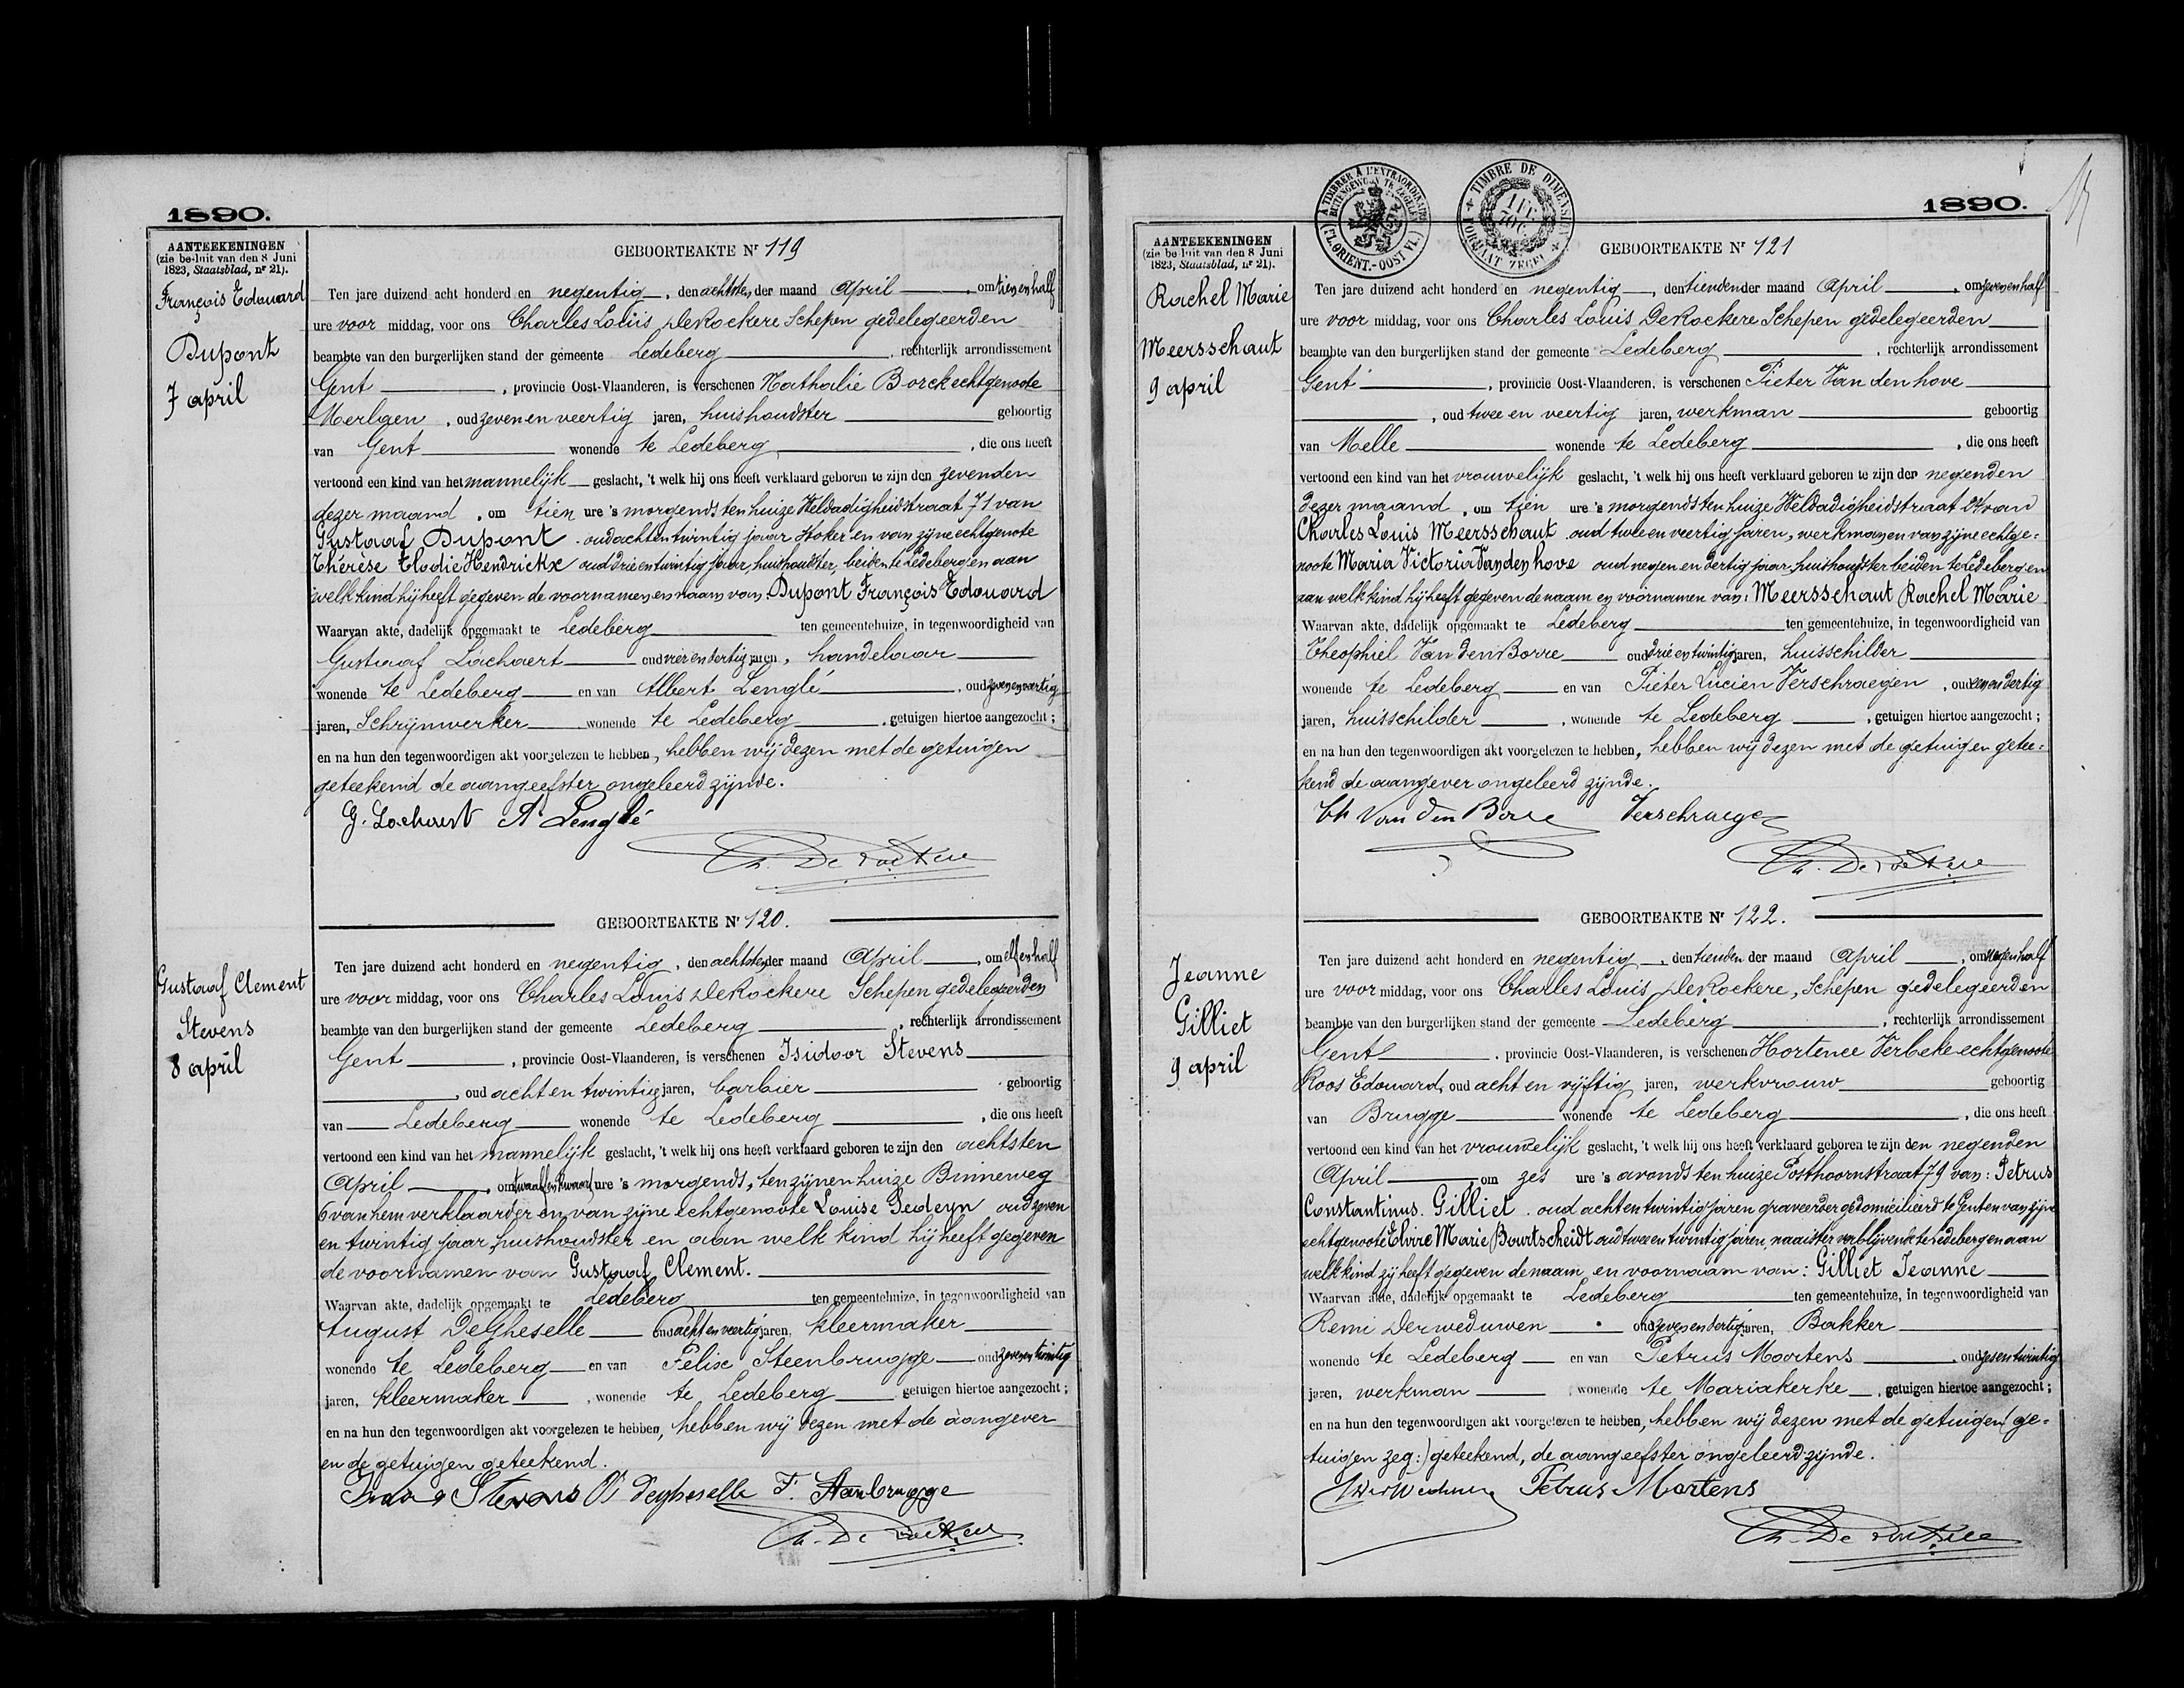 1890.
AANTEEKENINGEN
(zie besluit van den 8 Juni
1823, Staatsblad, nr 21).
François Edouard
Dupont
7 april
GEBOORTEAKTE Nr 119
Ten jare duizend acht honderd en negentig, den achtsten der maand April, om tien en half
ure voor middag, voor ons Charles Louis De Rockere Schepen gedelegeerden
beambte van den burgerlijken stand der gemeente Ledeberg, rechterlijk arrondissement
Gent, provincie Oost-Vlaanderen, is verschenen Nathalie Borck echtgenoote
Merlgen, oud zeven en veertig jaren, huishoudster geboortig
van Gent wonende te Ledeberg, die ons heeft
vertoond een kind van het mannelijk geslacht, 't welk hij ons heeft verklaard geboren te zijn den zevenden
dezer maand, om tien ure 's morgends ten huize Weldadigheidstraat 71 van
Gustaaf Dupont oud acht en twintig jaar Stoker en van zijne echtgenote
Thérèse Elodie Hendrickx oud drie en twintig jaar, huishoudster, beiden te Ledeberg en aan
welk kind hij heeft gegeven de voornamen en naam van Dupont François Edouard
Waarvan akte, dadelijk opgemaakt te Ledeberg ten gemeentehuize, in tegenwoordigheid van
Gustaaf Lachaert oud vier en dertig jaren, handelaar
wonende te Ledeberg en van Albert Lenglé, oud zeven en veertig
jaren, Schrijnwerker wonende te Ledeberg, getuigen hiertoe aangezocht;
en na hun den tegenwoordigen akt voorgelezen te hebben, hebben wij dezen met de getuigen
geteekend de aangeefster ongeleerd zijnde.
G. Lachaert A Lenglé
Ch. De Rockere
Gustaaf Clement
Stevens
8 april
GEBOORTEAKTE Nr 120.
Ten jare duizend acht honderd en negentig, den achtsten der maand April, om elf en half
ure voor middag, voor ons Charles Louis De Rockere Schepen gedelegeerden
beambte van den burgerlijken stand der gemeente Ledeberg, rechterlijk arrondissement
Gent, provincie Oost-Vlaanderen, is verschenen Isidoor Stevens
, oud acht en twintig jaren, barbier geboortig
van Ledeberg wonende te Ledeberg, die ons heeft
vertoond een kind van het mannelijk geslacht, 't welk hij ons heeft verklaard geboren te zijn den achtsten
April, om twaalf en kwaart ure 's morgends, ten zijnen huize Binneweg
6 van hem verklaarder en van zijne echtgenoote Louise Gedeyn oud zeven
en twintig jaar huishoudster en aan welk kind hij heeft gegeven
de voornamen van Gustaaf Clement.
Waarvan akte, dadelijk opgemaakt te Ledeberg ten gemeentehuize, in tegenwoordigheid van
August DeGheselle oud acht en veertig jaren, kleermaker
wonende te Ledeberg en van Felix Steenbrugge oud zeven en twintig
jaren, kleermaker, wonende te Ledeberg getuigen hiertoe aangezocht;
en na hun den tegenwoordigen akt voorgelezen te hebben, hebben wij dezen met de aangever
en de getuigen geteekend.
Isidoor Stevens A Degheselle F. Steenbrugge
Ch. De Rockere
A TIMBRER A L'EXTRAORDINAIRE
BUITENGEWOON TE ZEGELEN
(FL. ORIENT.-OOST VL.)
TIMBRE DE DIMENSION
FORMAAT ZEGEL
1890.
AANTEEKENINGEN
(zie besluit van den 8 Juni
1823, Staatsblad, nr 21).
Rachel Marie
Meersschaut
9 april
GEBOORTEAKTE Nr 121
Ten jare duizend acht honderd en negentig, den tienden der maand April, om zeven en half
ure voor middag, voor ons Charles Louis De Rockere Schepen gedelegeerden
beambte van den burgerlijken stand der gemeente Ledeberg, rechterlijk arrondissement
Gent, provincie Oost-Vlaanderen, is verschenen Pieter Van den hove
, oud twee en veertig jaren, werkman geboortig
van Melle wonende te Ledeberg, die ons heeft
vertoond een kind van het vrouwelijk geslacht, 't welk hij ons heeft verklaard geboren te zijn den negenden
dezer maand, om tien ure 's morgends ten huize Weldadigheidstraat van
Charles Louis Meersschaut oud twee en veertig jaren, werkman en van zijne echtge-
noote Maria Victoria Vanden hove oud negen en dertig jaar huishoudster beiden te Ledeberg en
aan welk kind hij heeft gegeven de naam en voornamen van: Meersschaut Rachel Marie
Waarvan akte, dadelijk opgemaakt te Ledeberg ten gemeentehuize, in tegenwoordigheid van
Theophiel Van den Borre oud drie en twintig jaren, huisschilder
wonende te Ledeberg en van Pieter Lucien Verschraegen, oud een en dertig
jaren, huisschilder, wonende te Ledeberg, getuigen hiertoe aangezocht;
en na hun den tegenwoordigen akt voorgelezen te hebben, hebben wij dezen met de getuigen getee-
kend de aangever ongeleerd zijnde.
Th Van den Borre Verschraegen
Ch. De Rockere
Jeanne
Gilliet
9 april
GEBOORTEAKTE Nr 122.
Ten jare duizend acht honderd en negentig, den tienden der maand April, om negen half
ure voor middag, voor ons Charles Louis De Rockere, Schepen gedelegeerden
beambte van den burgerlijken stand der gemeente Ledeberg, rechterlijk arrondissement
Gent, provincie Oost-Vlaanderen, is verschenen Hortence Verbeke echtgenoote
Roos Edouard, oud acht en vijftig jaren, werkvrouw geboortig
van Brugge wonende te Ledeberg, die ons heeft
vertoond een kind van het vrouwelijk geslacht, 't welk hij ons heeft verklaard geboren te zijn den negenden
April om zes ure 's avonds ten huize Posthoornstraat 79 van: Petrus
Constantinus. Gilliet. oud acht en twintig jaren graveerder gedomicilieerd te Gent en van zijne
echtgenoote Elvire Marie Bourtscheidt oud twee en twintig jaren, naaister verblijvende te Ledeberg en aan
welk kind zij heeft gegeven de naam en voornaam van: Gilliet Jeanne
Waarvan akte, dadelijk opgemaakt te Ledeberg ten gemeentehuize, in tegenwoordigheid van
Remi Derweduwen oud zeven en dertig jaren, Bakker
wonende te Ledeberg en van Petrus Moortens, oud zes en twintig
jaren, werkman, wonende te Mariakerke, getuigen hiertoe aangezocht;
en na hun den tegenwoordigen akt voorgelezen te hebben, hebben wij dezen met de getuigen (ge-
tuigen zeg:) geteekend, de aangeefster ongeleerd zijnde.
Derweduwen Petrus Mortens
Ch. De Rockere